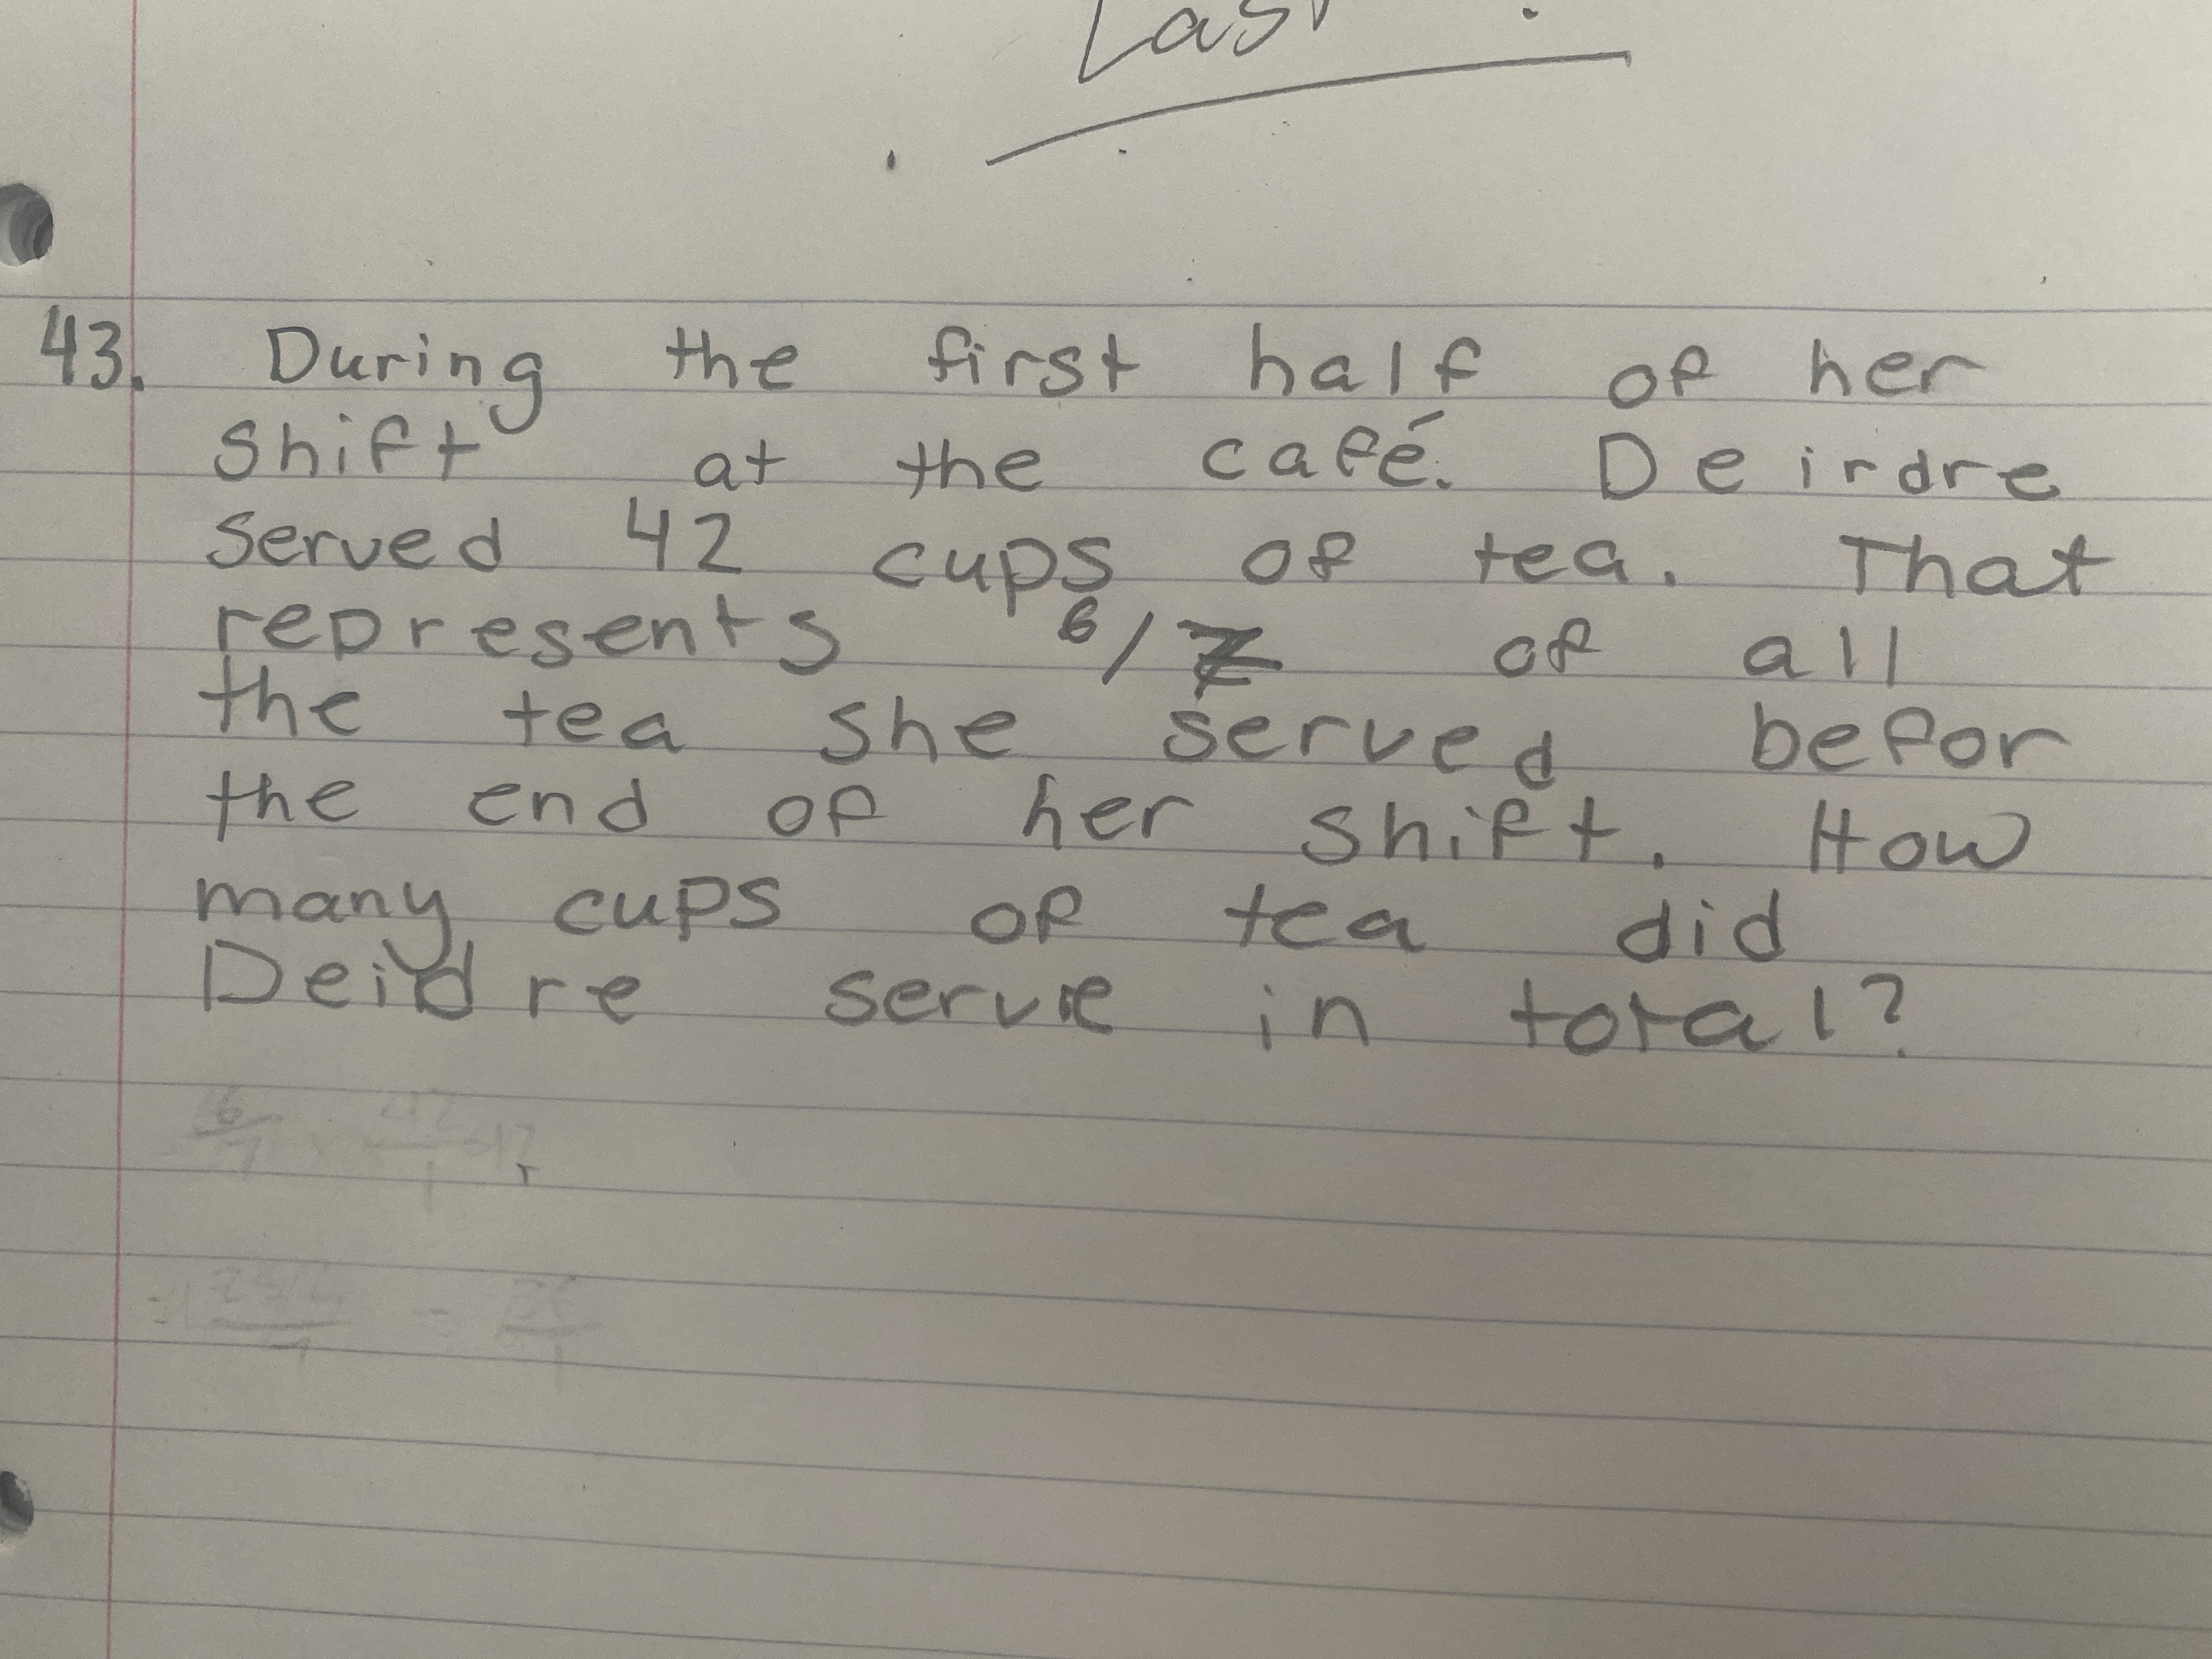 Last
43. During the first half of her
shift at the café. Deirdre
served 42 cups of tea. That
represents 6/7 of all
the tea she served befor
the end of her shift. How
many cups of tea did
Deidre serve in total?
6/7 × 42/1 = ?